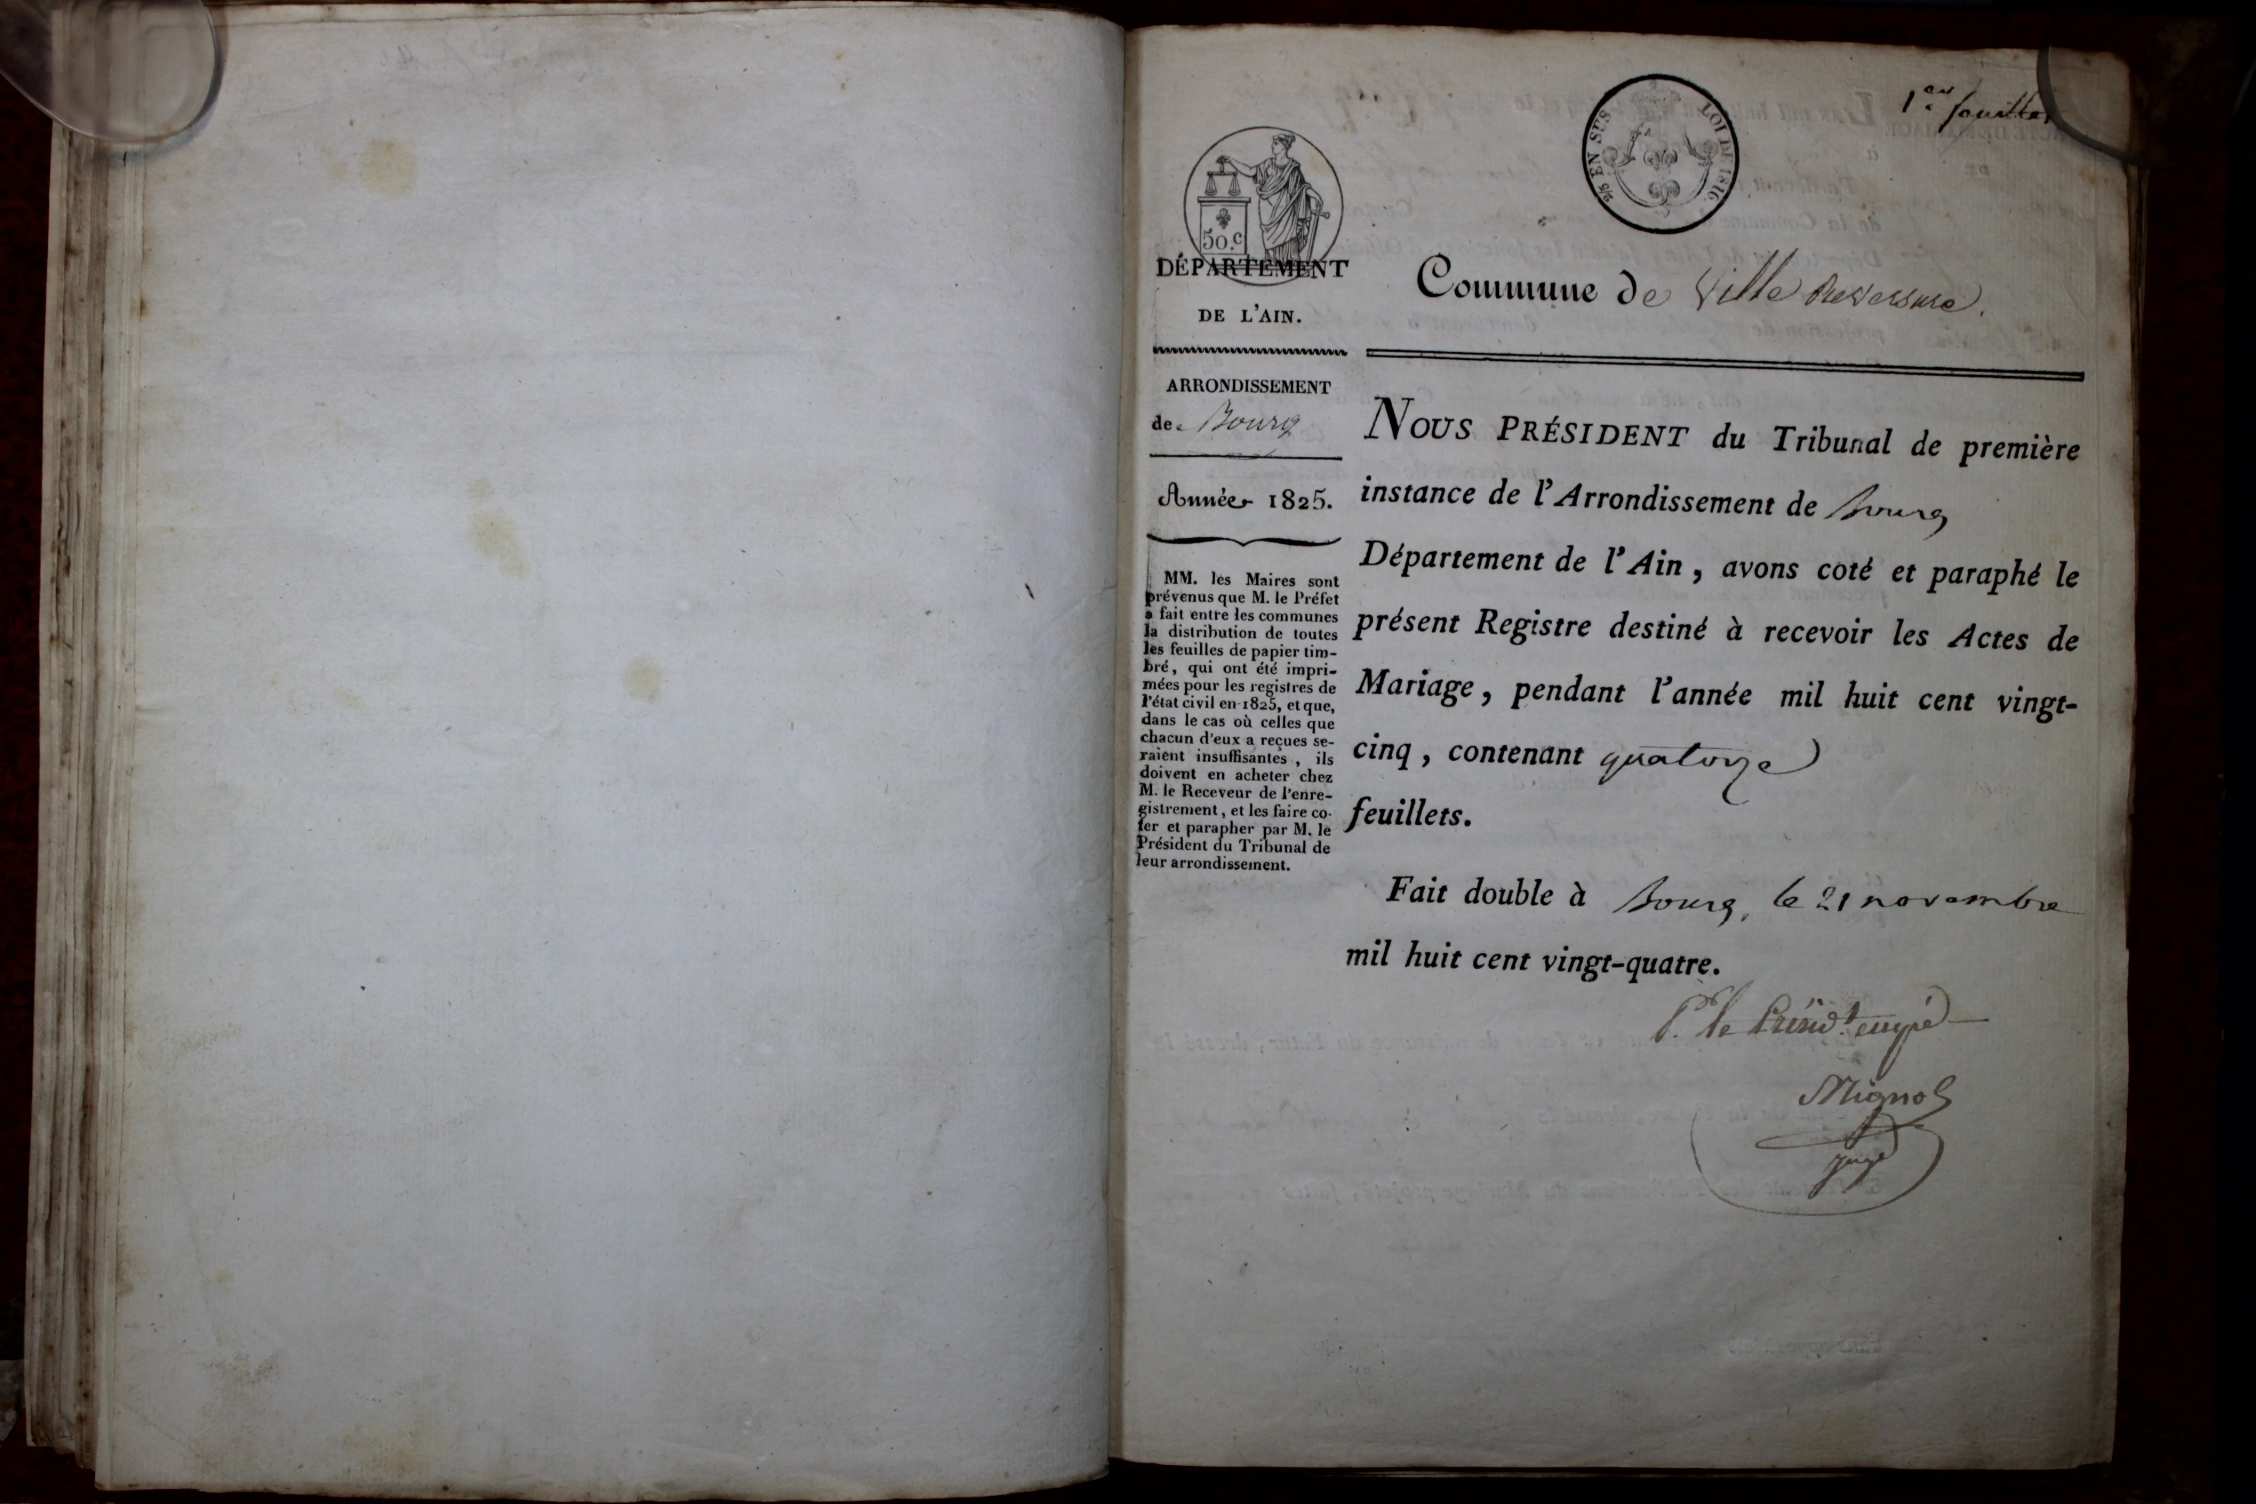 1.er feuillet
2/5 EN SUS
LOI DE 1816.
50.c
DÉPARTEMENT
DE L'AIN.
ARRONDISSEMENT
de Bourg
Année 1825.
MM. les Maires sont
prévenus que M. le Préfet
a fait entre les communes
la distribution de toutes
les feuilles de papier tim-
bré, qui ont été impri-
mées pour les registres de
l'état civil en 1825, et que,
dans le cas où celles que
chacun d'eux a reçues se-
raient insuffisantes, ils
doivent en acheter chez
M. le Receveur de l'enre-
gistrement, et les faire co-
ter et parapher par M. le
Président du Tribunal de
leur arrondissement.
Commune de Ville Reversure.
NOUS PRÉSIDENT du Tribunal de première
instance de l'Arrondissement de Bourg
Département de l'Ain, avons coté et paraphé le
présent Registre destiné à recevoir les Actes de
Mariage, pendant l'année mil huit cent vingt-
cinq, contenant quatorze
feuillets.
Fait double à Bourg, le 21 novembre
mil huit cent vingt-quatre.
P. le Présid.t empé
Mignot
juge